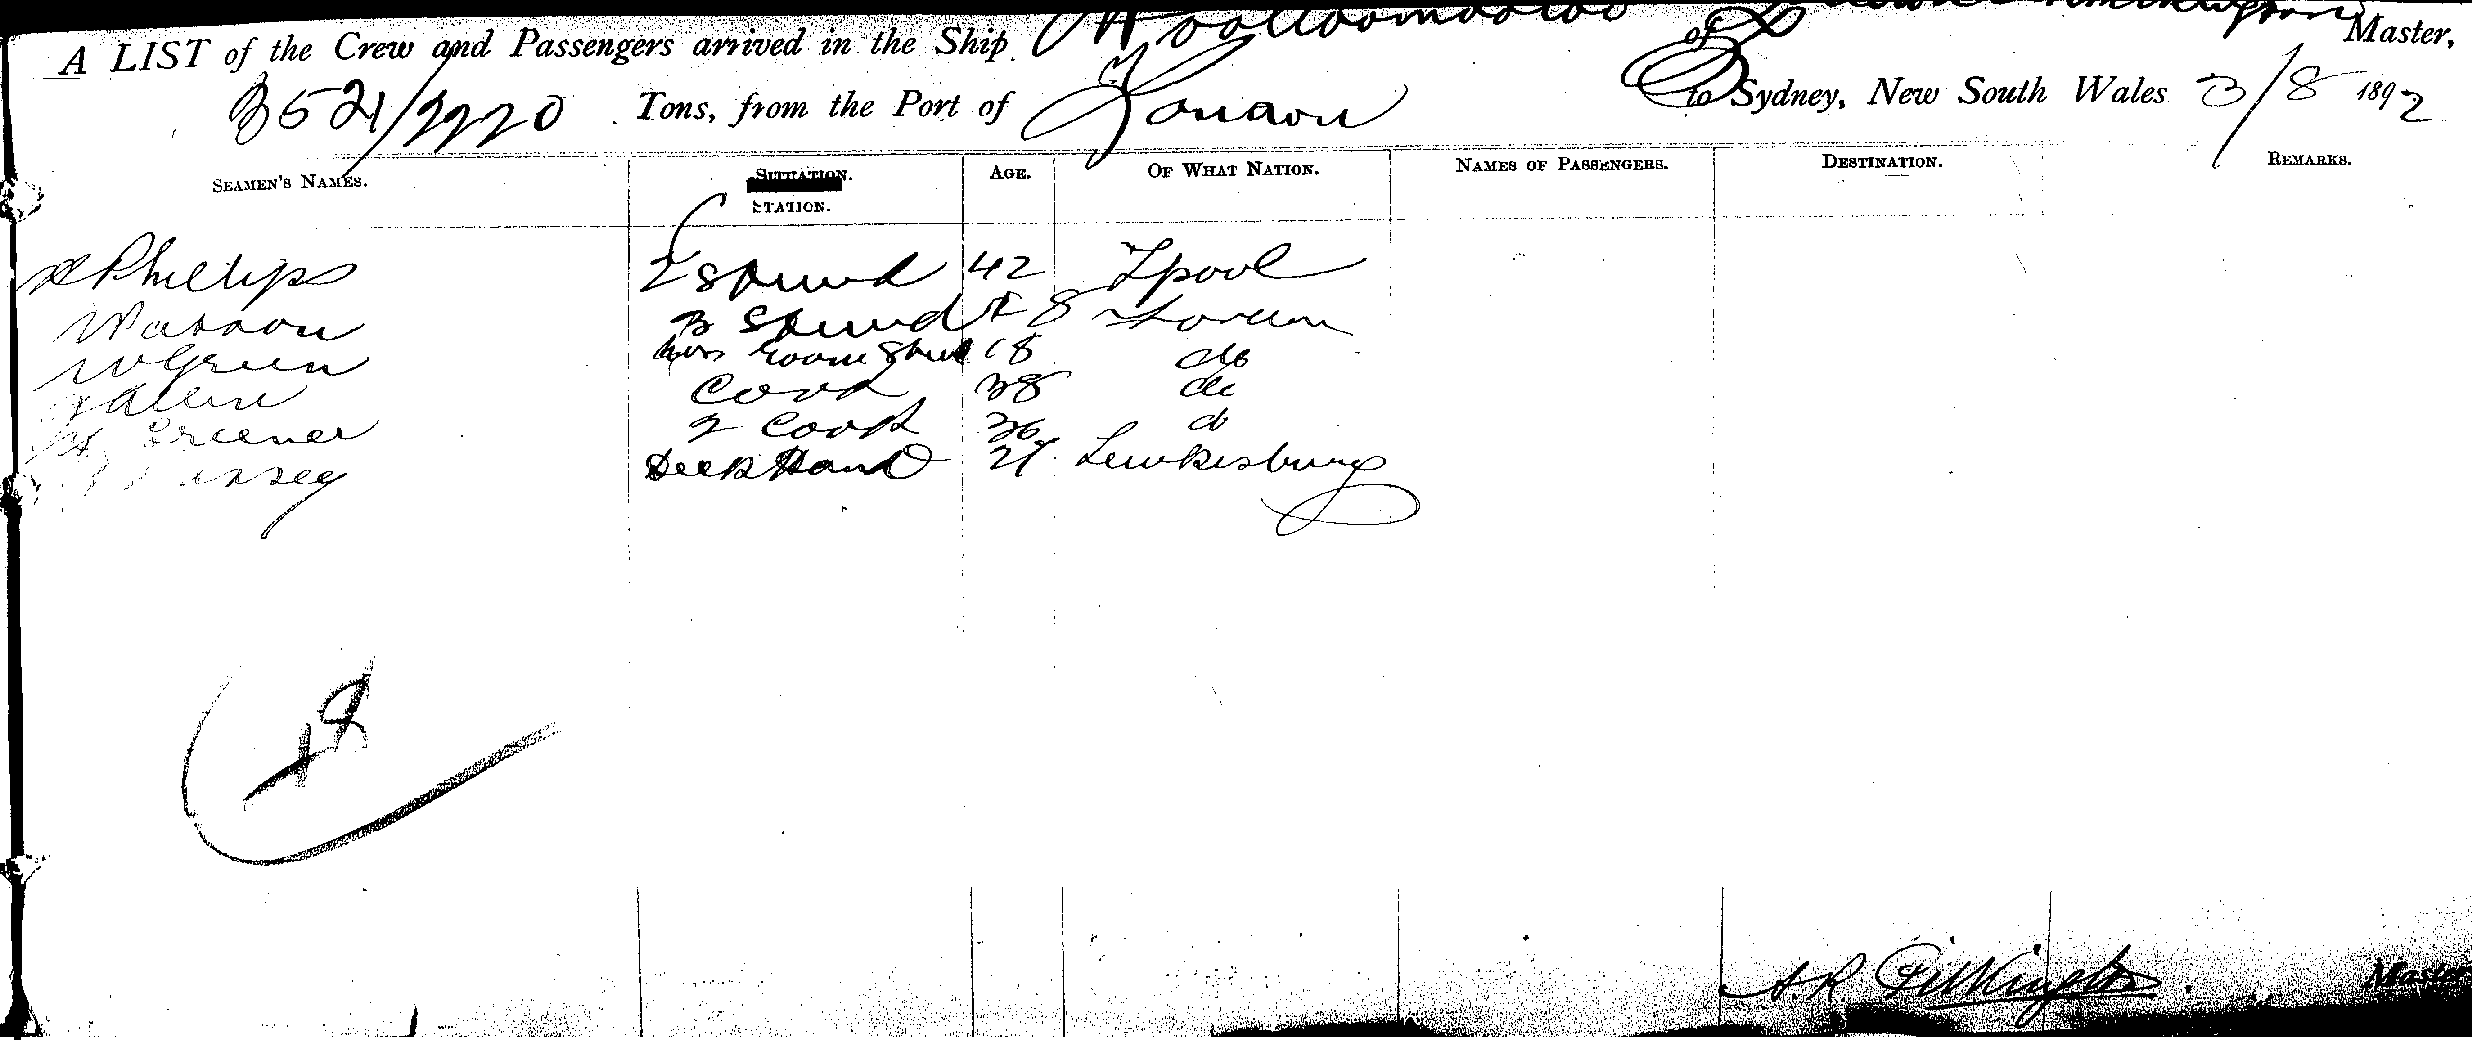 A LIST of the Crew and Passengers arrived in the Ship Woolloomooloo of London Pilkington Master,
3521/2220 Tons, from the Port of London to Sydney, New South Wales 3/8 1892
SEAMEN'S NAMES. SITUATION. AGE. OF WHAT NATION. NAMES OF PASSENGERS. DESTINATION. REMARKS.
STATION.
Phillips 2 Steward 42 Lpool
Watson 3 Steward 8 London
W Green room Stwd 18 do
Allen Cook 38 do
Greener 2 Cook 36 do
Deck Hand 21 Tewkesbury
A.R. Pilkington. Master